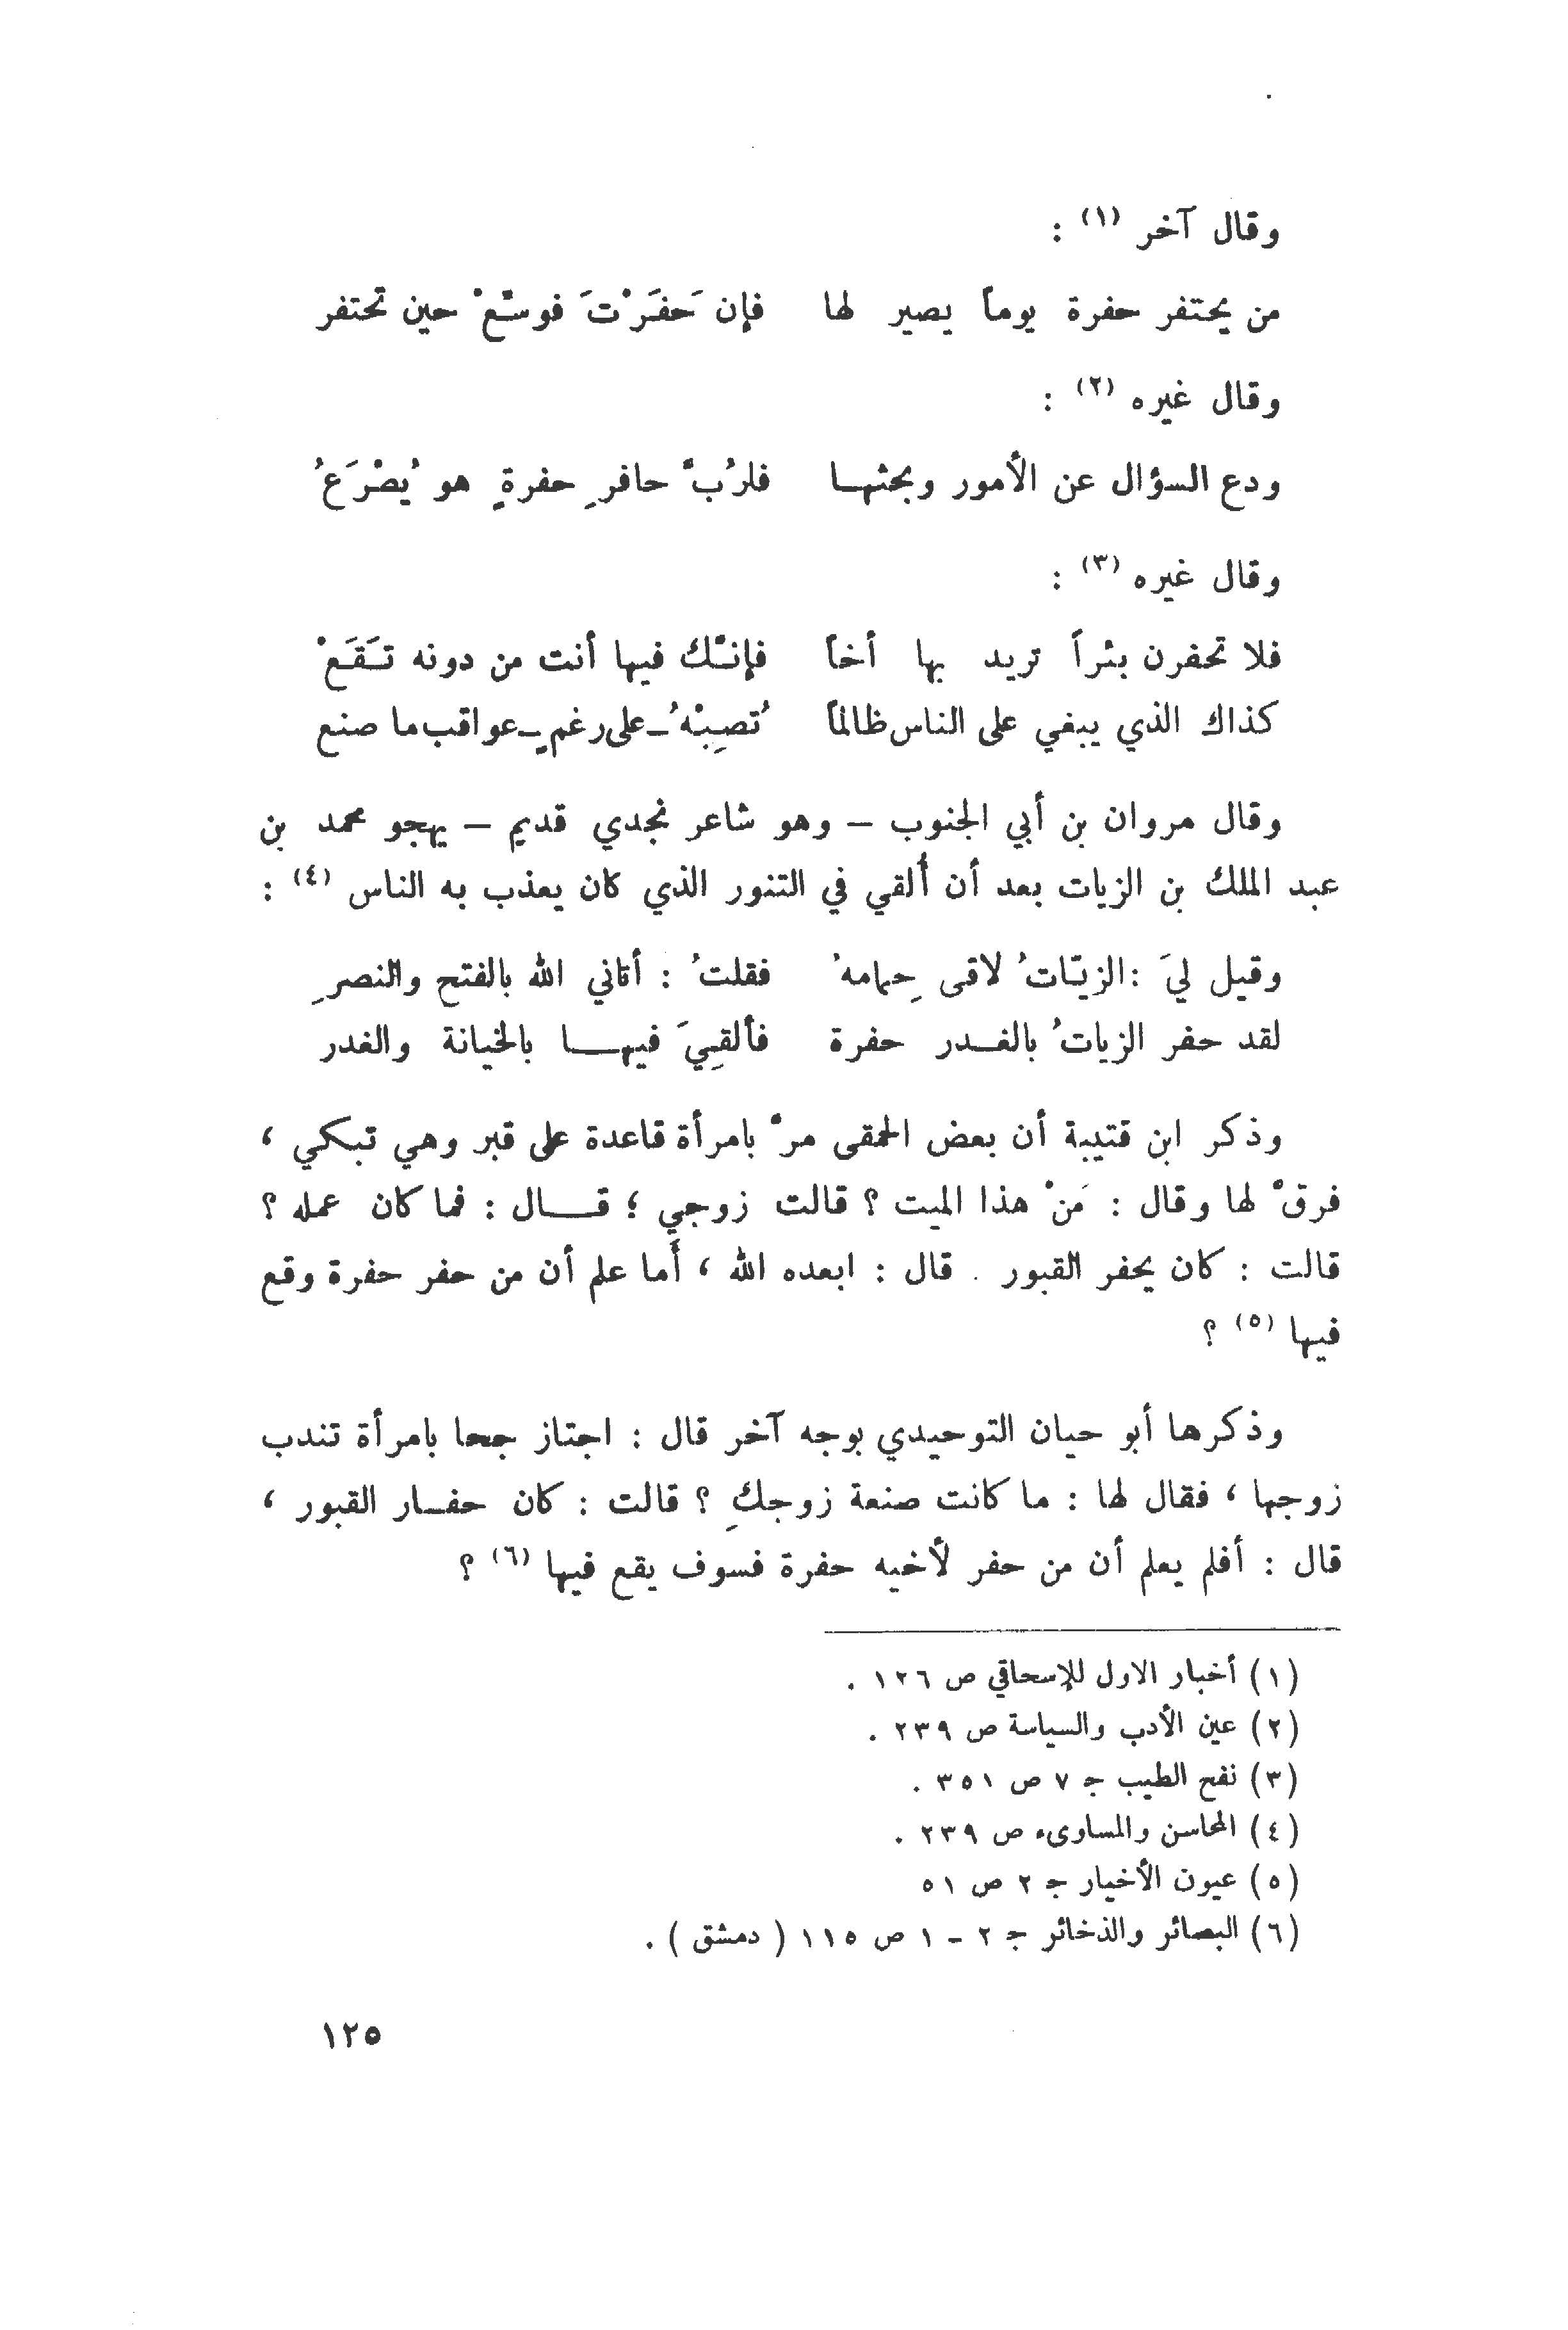 وقال آخر (١) :
من يحتفر حفرة يوماً يصير لها    فإن حَفَرْتَ فوسِّعْ حين تحتفر
وقال غيره (٢) :
ودع السؤال عن الأمور وبحثهـا    فلرُبَّ حافرِ حفرةٍ هو يُصْرَعُ
وقال غيره (٣) :
فلا تحفرن بئراً تريد بها أخاً    فإنـَّك فيها أنت من دونه تـَقَعْ
كذاك الذي يبغي على الناس ظالماً    تُصِبْهُ ـ على رغمٍ ـ عواقب ما صنع
وقال مروان بن أبي الجنوب – وهو شاعر نجدي قديم – يهجو محمد بن
عبد الملك بن الزيات بعد أن أُلقي في التنور الذي كان يعذب به الناس (٤) :
وقيل ليَ : الزيّاتُ لاقى حِمامهُ    فقلتُ : أتاني الله بالفتح والنصرِ
لقد حفر الزياتُ بالغـدر حفرة    فألقِيَ فيهـــا بالخيانة والغدر
وذكر ابن قتيبة أن بعض الحمقى مرَّ بامرأة قاعدة على قبر وهي تبكي ،
فرقَّ لها وقال : مَنْ هذا الميت ؟ قالت زوجي ؛ قـــال : فما كان عمله ؟
قالت : كان يحفر القبور . قال : ابعده الله ، أَما علم أن من حفر حفرة وقع
فيها (٥) ؟
وذكرها أبو حيان التوحيدي بوجه آخر قال : اجتاز جحا بامرأة تندب
زوجها ، فقال لها : ما كانت صنعة زوجكِ ؟ قالت : كان حفــار القبور ،
قال : أفلم يعلم أن من حفر لأخيه حفرة فسوف يقع فيها (٦) ؟
(١) أخبار الاول للإسحاقي ص ١٢٦ .
(٢) عين الأدب والسياسة ص ٢٣٩ .
(٣) نفح الطيب جـ ٧ ص ٣٥١ .
(٤) المحاسن والمساوىء ص ٢٣٩ .
(٥) عيون الأخبار جـ ٢ ص ٥١
(٦) البصائر والذخائر جـ ٢ - ١ ص ١١٥ ( دمشق ) .
١٢٥